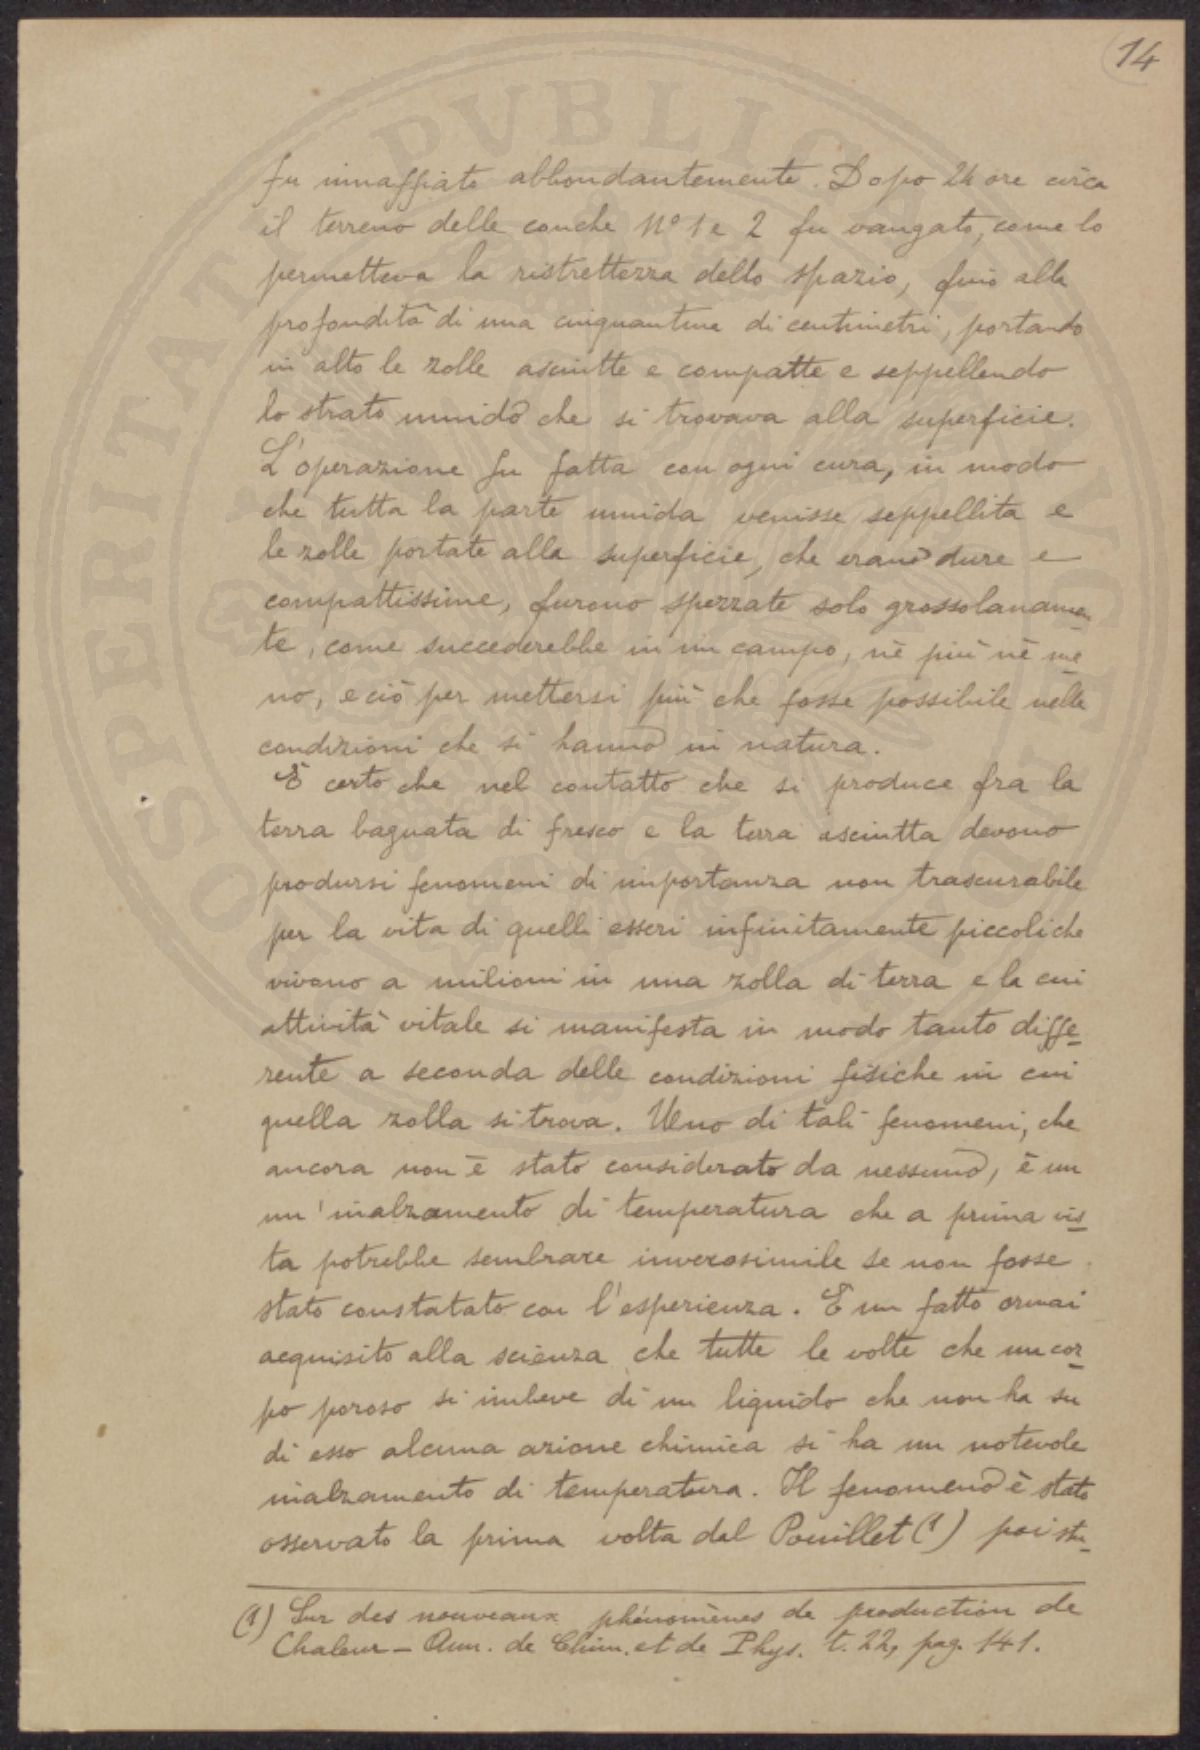 14
fu innaffiato abbondantemente. Dopo 24 ore circa
il terreno delle conche Nº 1 e 2 fu vangato, come lo
permetteva la ristrettezza dello spazio, fino alla
profondità di una cinquantina di centimetri, portando
in alto le zolle asciutte e compatte e seppellendo
lo strato umido che si trovava alla superficie.
L'operazione fu fatta con ogni cura, in modo
che tutta la parte umida venisse seppellita e
le zolle portate alla superficie, che erano dure e
compattissime, furono spezzate solo grossolanamen
te, come succederebbe in un campo, nè più nè me
no, e ciò per mettersi più che fosse possibile nelle
condizioni che si hanno in natura.
È certo che nel contatto che si produce fra la
terra bagnata di fresco e la terra asciutta devono
prodursi fenomeni di importanza non trascurabile
per la vita di quelli esseri infinitamente piccoli che
vivono a milioni in una zolla di terra e la cui
attività vitale si manifesta in modo tanto diffe
rente a seconda delle condizioni fisiche in cui
quella zolla si trova. Uno di tali fenomeni, che
ancora non è stato considerato da nessuno, è un
un'inalzamento di temperatura che a prima vis
ta potrebbe sembrare inverosimile se non fosse
stato constatato con l'esperienza. È un fatto ormai
acquisito alla scienza che tutte le volte che un cor
po poroso si imbeve di un liquido che non ha su
di esso alcuna azione chimica si ha un notevole
inalzamento di temperatura. Il fenomeno è stato
osservato la prima volta dal Pouillet (1) poi stu
(1) Sur des nouveaux phénomènes de production de
Chaleur - Ann. de Chim. et de Phys. t. 22, pag. 141.